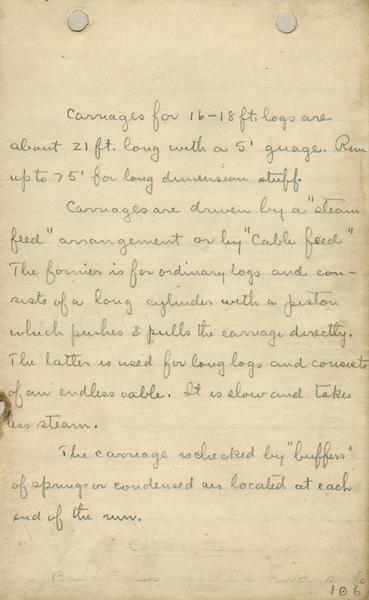 Carriages for 16-18 ft. logs are
about 21 ft. long with a 5' guage. Run
up to 75' for long dimension stuff.
Carriages are driven by a "steam
feed" arrangement or by "Cable feed"
The former is for ordinary logs and con-
sists of a long cylinder with a piston
which pushes & pulls the carriage directly.
The latter is used for long logs and consists
of an endless cable. It is slow and takes
less steam.
The carriage is checked by "buffers"
of springs or condensed air located at each
end of the run.
106